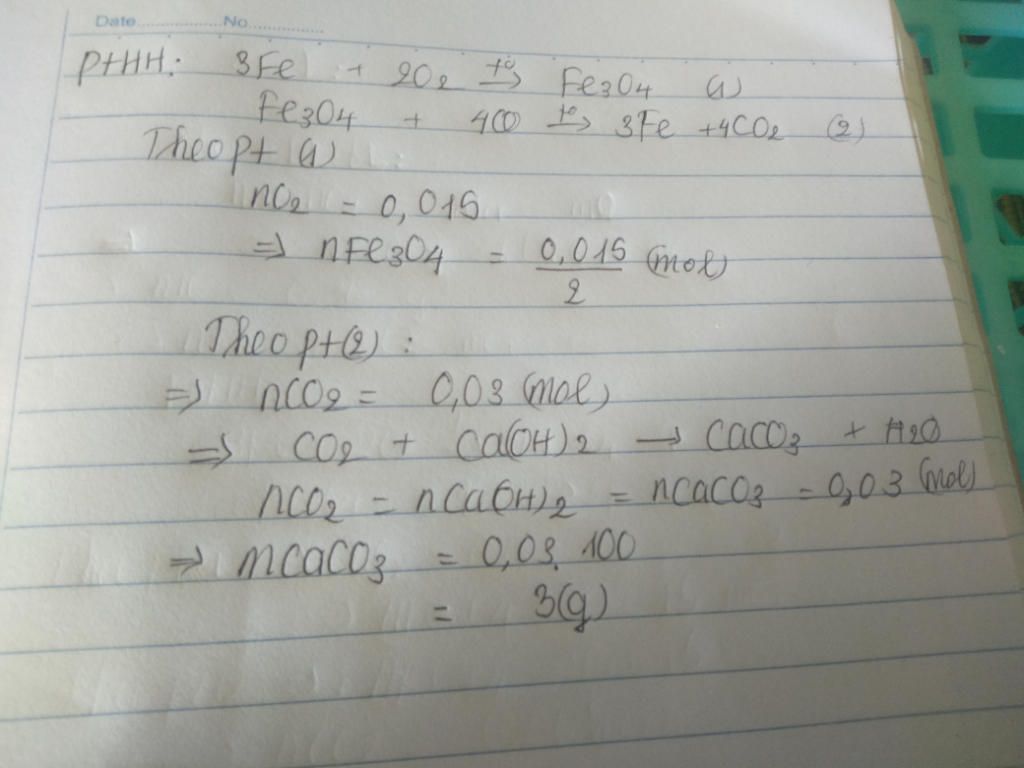 Date.................No..................
PtHH: 3Fe + 2O2 t°→ Fe3O4 (1)
Fe3O4 + 4CO t°→ 3Fe +4CO2 (2)
Theo pt (1)
nO2 = 0,015
=> nFe3O4 = 0,015/2 (mol)
Theo pt(2) :
=> nCO2 = 0,03 (mol)
=> CO2 + Ca(OH)2 → CaCO3 + H2O
nCO2 = nCa(OH)2 = nCaCO3 = 0,03 (mol)
=> mCaCO3 = 0,03.100
= 3(g)